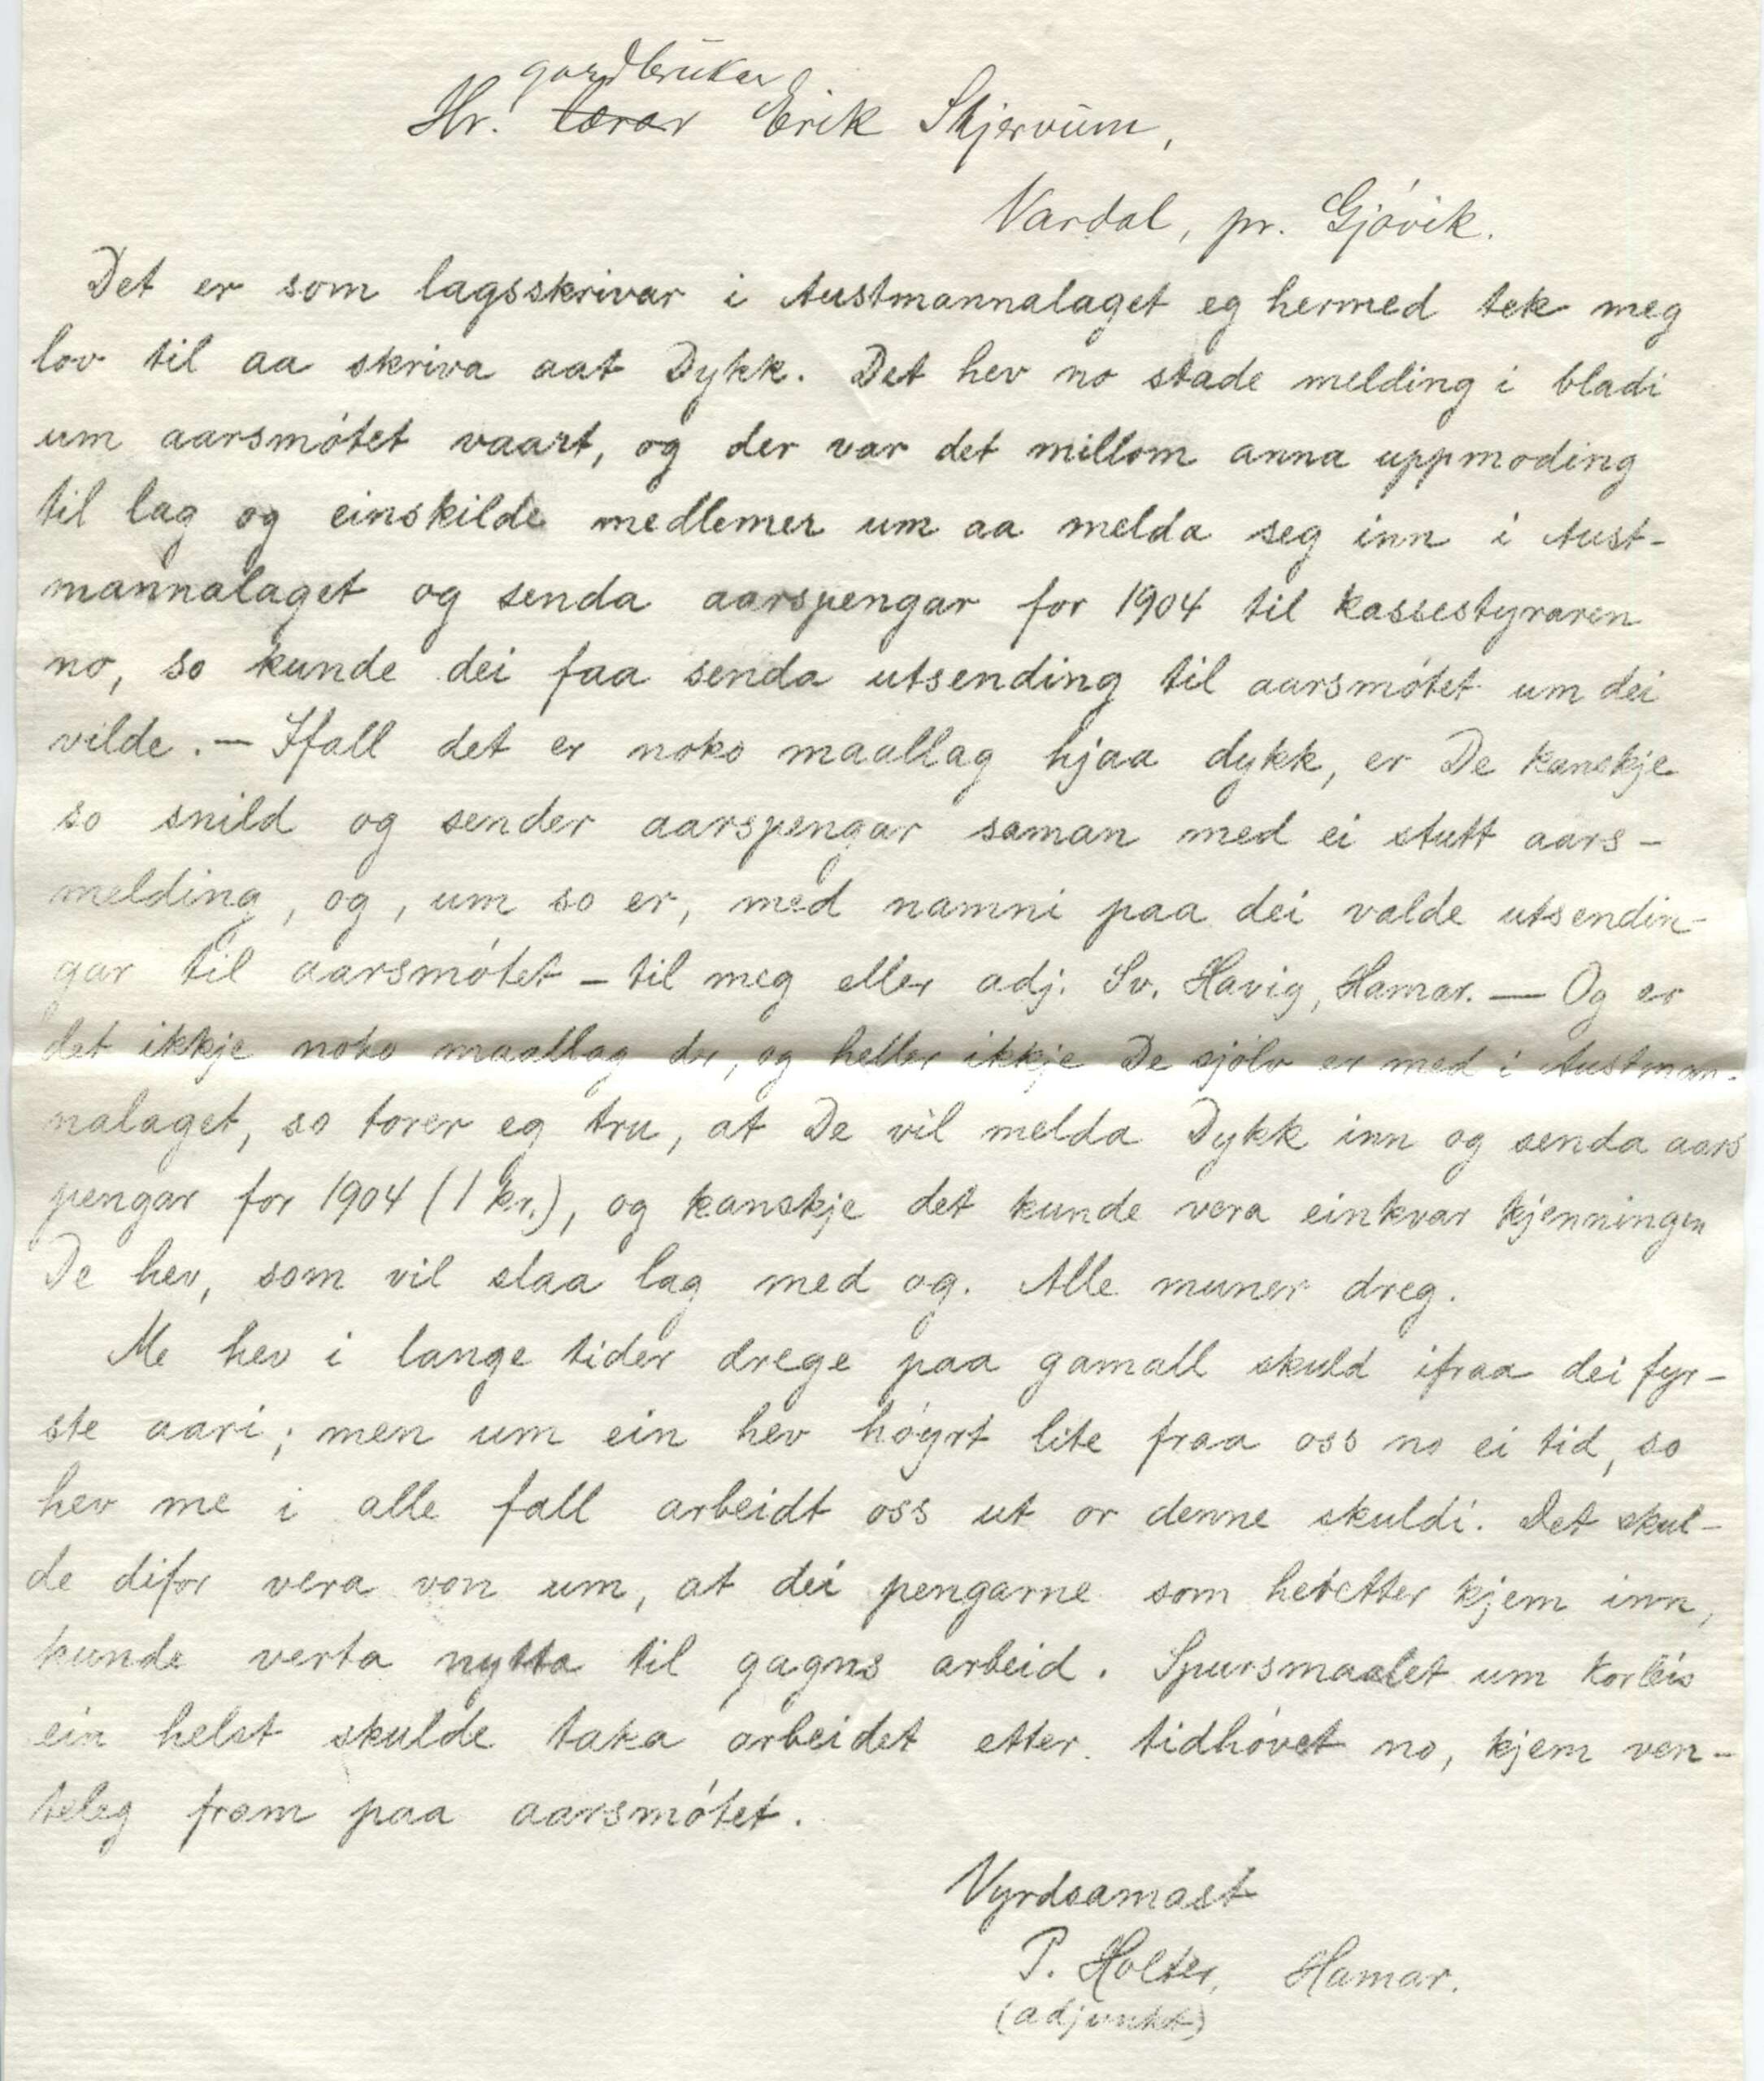 gardbrukar
Hr. lærar Erik Skjervum,
Vardal, pr. Gjóvik.
Det er som lagsskrivar i Austmannalaget eg hermed tek meg
lov til aa skriva aat Dykk. Det hev no stade melding i bladi
um aarsmótet vaart, og der var det millom anna uppmoding
til lag og einskilde medlemer um aa melda seg inn i Aust-
mannalaget og senda aarspengar for 1904 til kassestyraren
no, so kunde dei faa senda utsending til aarsmótet um dei
vilde. — Ifall det er noko maallag hjaa dykk, er De kanskje
so snild og sender aarspengar saman med ei stutt aars-
melding, og, um so er, med namni paa dei valde utsendin-
gar til aarsmótet — til meg eller adj. Sv. Havig, Hamar. — Og er
det ikkje noko maallag der, og heller ikkje De sjólv er med i Austman-
nalaget, so torer eg tru, at De vil melda Dykk inn og senda aars
pengar for 1904 (1 kr.), og kanskje det kunde vera einkvar kjenningen
De hev, som vil slaa lag med og. Alle muner dreg.
Me hev i lange tider drege paa gamall skuld ifraa dei fyr-
ste aari; men um ein hev hóyrt lite fraa oss no ei tid, so
hev me i alle fall arbeidt oss ut or denne skuldi. Det skul-
de difor vera von um, at dei pengarne som heretter kjem inn,
kunde verta nytta til gagns arbeid. Spursmaalet um korleis
ein helst skulde taka arbeidet etter tidhóvet no, kjem ven-
teleg fram paa aarsmótet.
Vyrdsamast
P. Holter, Hamar.
(adjunkt)